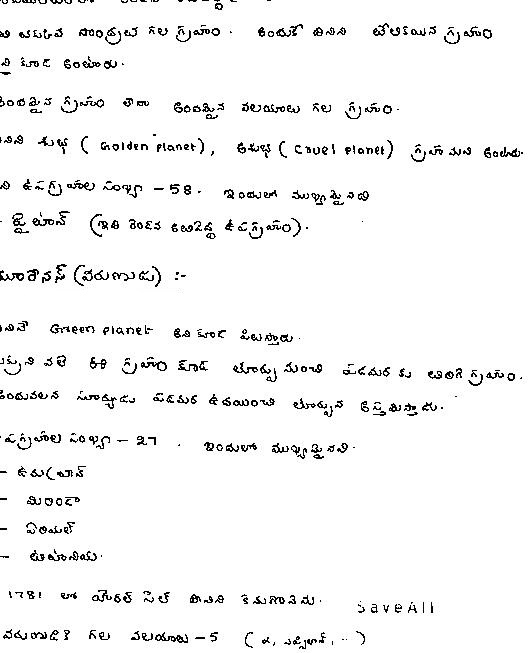 తక్కువ సాంద్రత గల గ్రహం. అందుకే దీనిని తేలికయిన గ్రహం
కూడా అంటారు.
అందమైన గ్రహం లేదా అందమైన వలయాలు గల గ్రహం.
దీనిని శుభ (Golden planet), అశుభ (Cruel planet) గ్రహమని అంటారు.
ఉపగ్రహాల సంఖ్యా - 58. ఇందులో ముఖ్యమైనది
- టైటాన్ (ఇది రెండవ అతిపెద్ద ఉపగ్రహం).
యూరేనస్ (వరుణుడు) :-
దీనినే Green planet అని కూడా పిలుస్తారు.
వలె ఈ గ్రహం కూడా తూర్పు నుంచి పడమర కు తిరిగే గ్రహం.
అందువలన సూర్యుడు పడమర ఉదయించి తూర్పున అస్తమిస్తాడు.
ఉపగ్రహాల సంఖ్యా - 27. ఇందులో ముఖ్యమైనవి.
- ఉమ్రోన్
- మిరిండా
- ఏరియల్
- టిటానియ.
1781 లో దీనిని కనుగొనెను. SaveAll
వరుణుడికి గల వలయాలు - 5 (α, ఎప్సిలాన్, ..)